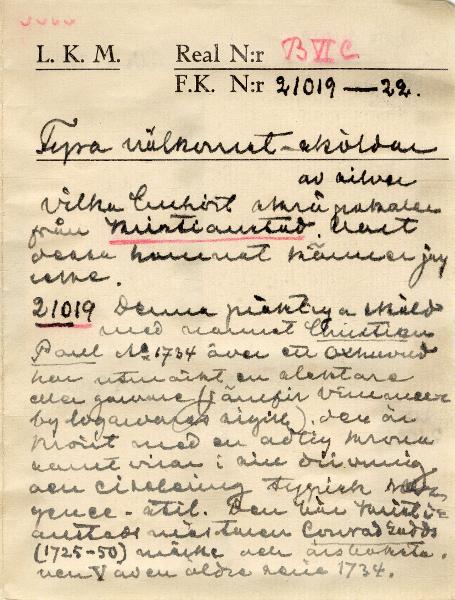 L. K. M. Real N:r B VI C
F.K. N:r 21019—22.
Fyra välkomst-sköldar
av silver
vilka tillhört skråpokaler
från Kristianstad. Vart
dessa kommit känner jag
icke.
21019 Denna präktiga sköld
med namnet Christian
Pavel No 1734 över ett Oxhuvud
har utmärkt en slaktare
eller garvare (jämför Vimmer-
by logarvares sigill). den är
krönt med en adlig krona
samt visar i sin drivning
och ciselering typisk
gence-stil. Den bär Kristi-
anstads mästaren Conrad
(1725-50) märke och årsbokstav.
men V av den äldre serie 1734.